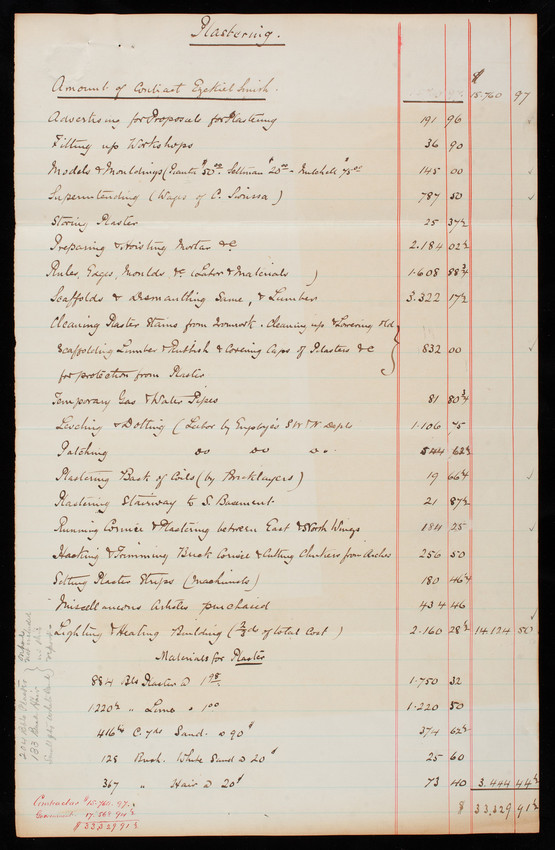 Plastering.
$
Amount of Contract Ezekiel Smith. 15.760 97
Advertising for Proposals for Plastering 191 96
Fitting up Workshops 36 90
Models & Mouldings ( $50.00. Sellman $20.00 - Mitchell $75.00 145 00
Superintending (Wages of C. ) 787 50
Storing Plaster 25 37½
Preparing & Hoisting Mortar &c 2.184 02½
Rules, Edges, Moulds, &c. (Labor & Materials) 1.608 88¾
Scaffolds & Dismantling Same, & Lumber 3.322 17½
Cleaning Plaster Stains from Ironwork. Cleaning up & Lowering old
Scaffolding Lumber & Rubbish & Covering Caps of Pilasters &c 832 00
for protection from Plaster
Temporary Gas & Water Pipes 81 80¾
Leveling & Dotting (Labor by Employe's Depts 1.106 75
Patching do do do. 544 62½
Plastering Back of Coils (by Bricklayers) 19 66¼
Plastering Stairway to S. Basement 21 87½
Running Cornice & Plastering between East & North Wings 184 25
Hacking & Trimming Brick Cornice & Cutting from Arches 256 50
Setting Plaster Strips (Machinists) 180 46¼
Miscellaneous Articles purchased 434 46
Lighting & Heating Building (⅔ds of total Cost) 2.160 28½ 14.124 50
Materials for Plaster
884 Bls Plaster @ 1.98 1.750 32
1220½ " Lime @ 1.00 1.220 50
C. yds Sand. @ 90¢ 374 62½
128 Bush. White Sand @ 20¢ 25 60
367 " Hair @ 20¢ 73 40 3.444 44½
$ 33,329 91½
Contractor $15.760.97.
17.568 94½
$ 33,329 91½